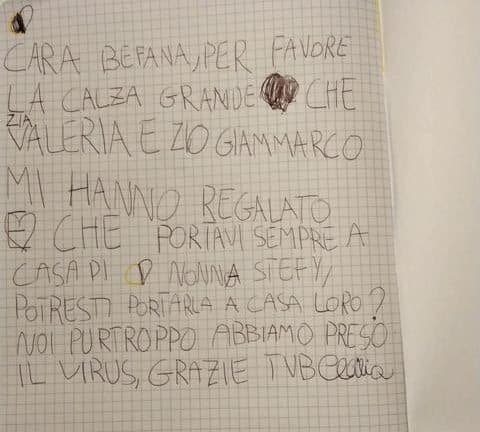 CARA BEFANA, PER FAVORE
LA CALZA GRANDE CHE
ZIA
VALERIA E ZIO GIAMMARCO
MI HANNO REGALATO
E CHE PORTAVI SEMPRE A
CASA DI NONNA STEFY,
POTRESTI PORTARLA A CASA LORO?
NOI PURTROPPO ABBIAMO PRESO
IL VIRUS, GRAZIE TVB